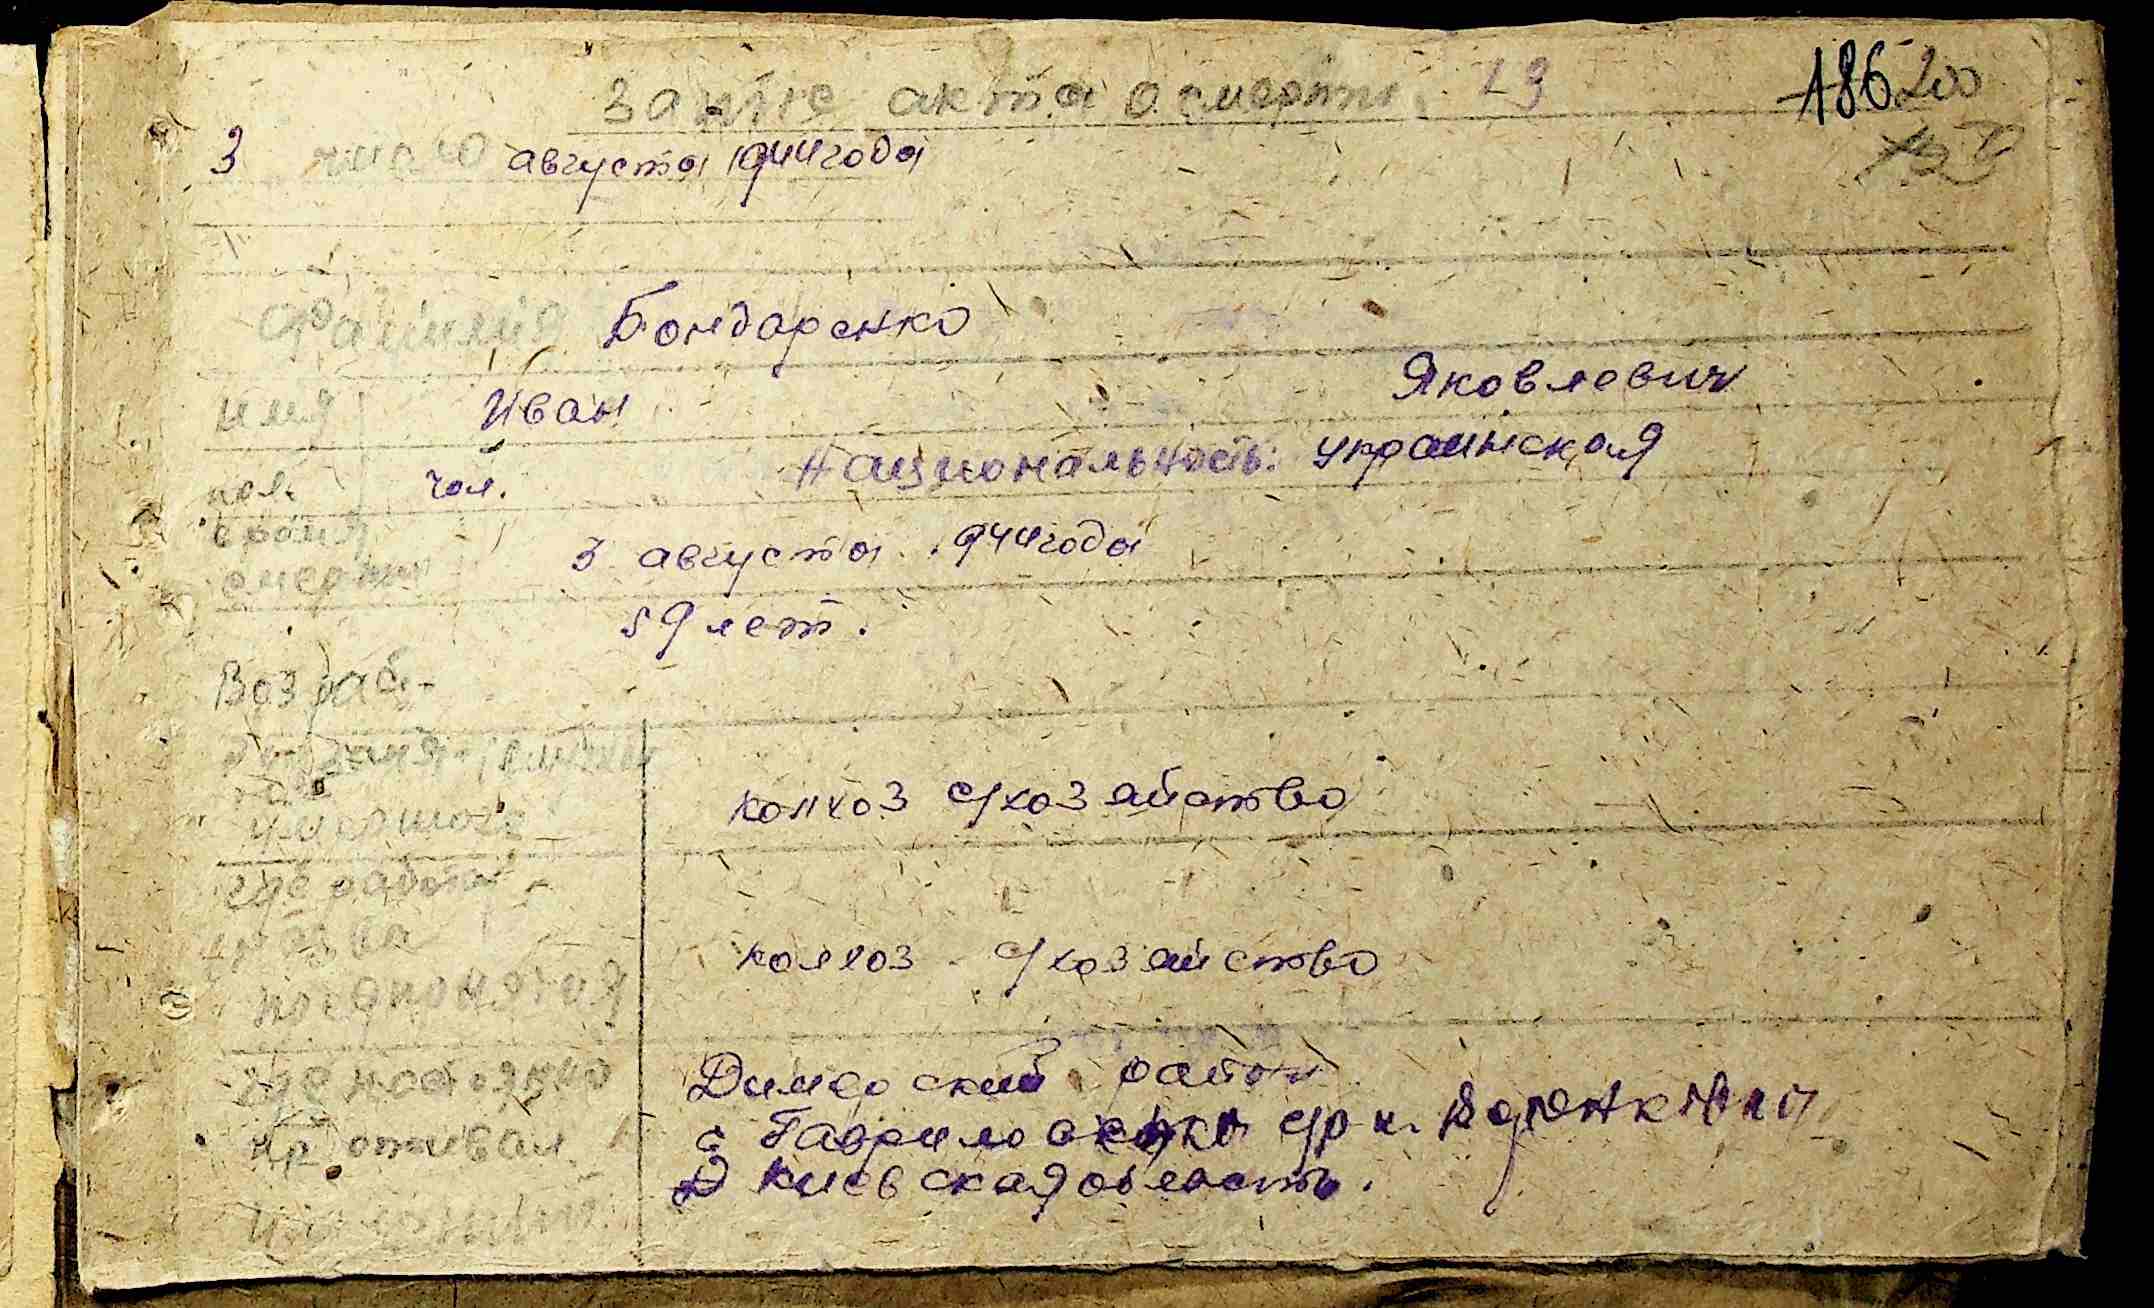 Запис акта о смерти. 19
186 200
3 число августа 1944 года
Фамилия Бондаренко
имя Иван Яковлевич
пол. чол. Национальность: украинская
время
смерти 3 августа 1944 года
59 лет.
Возраст-
умершого колхоз с/хозяйство
где работа-
предприятия колхоз с/хозяйство
где постоянно Димерский район
проживал с Гавриловка с/р н.
умерший Киевская область.